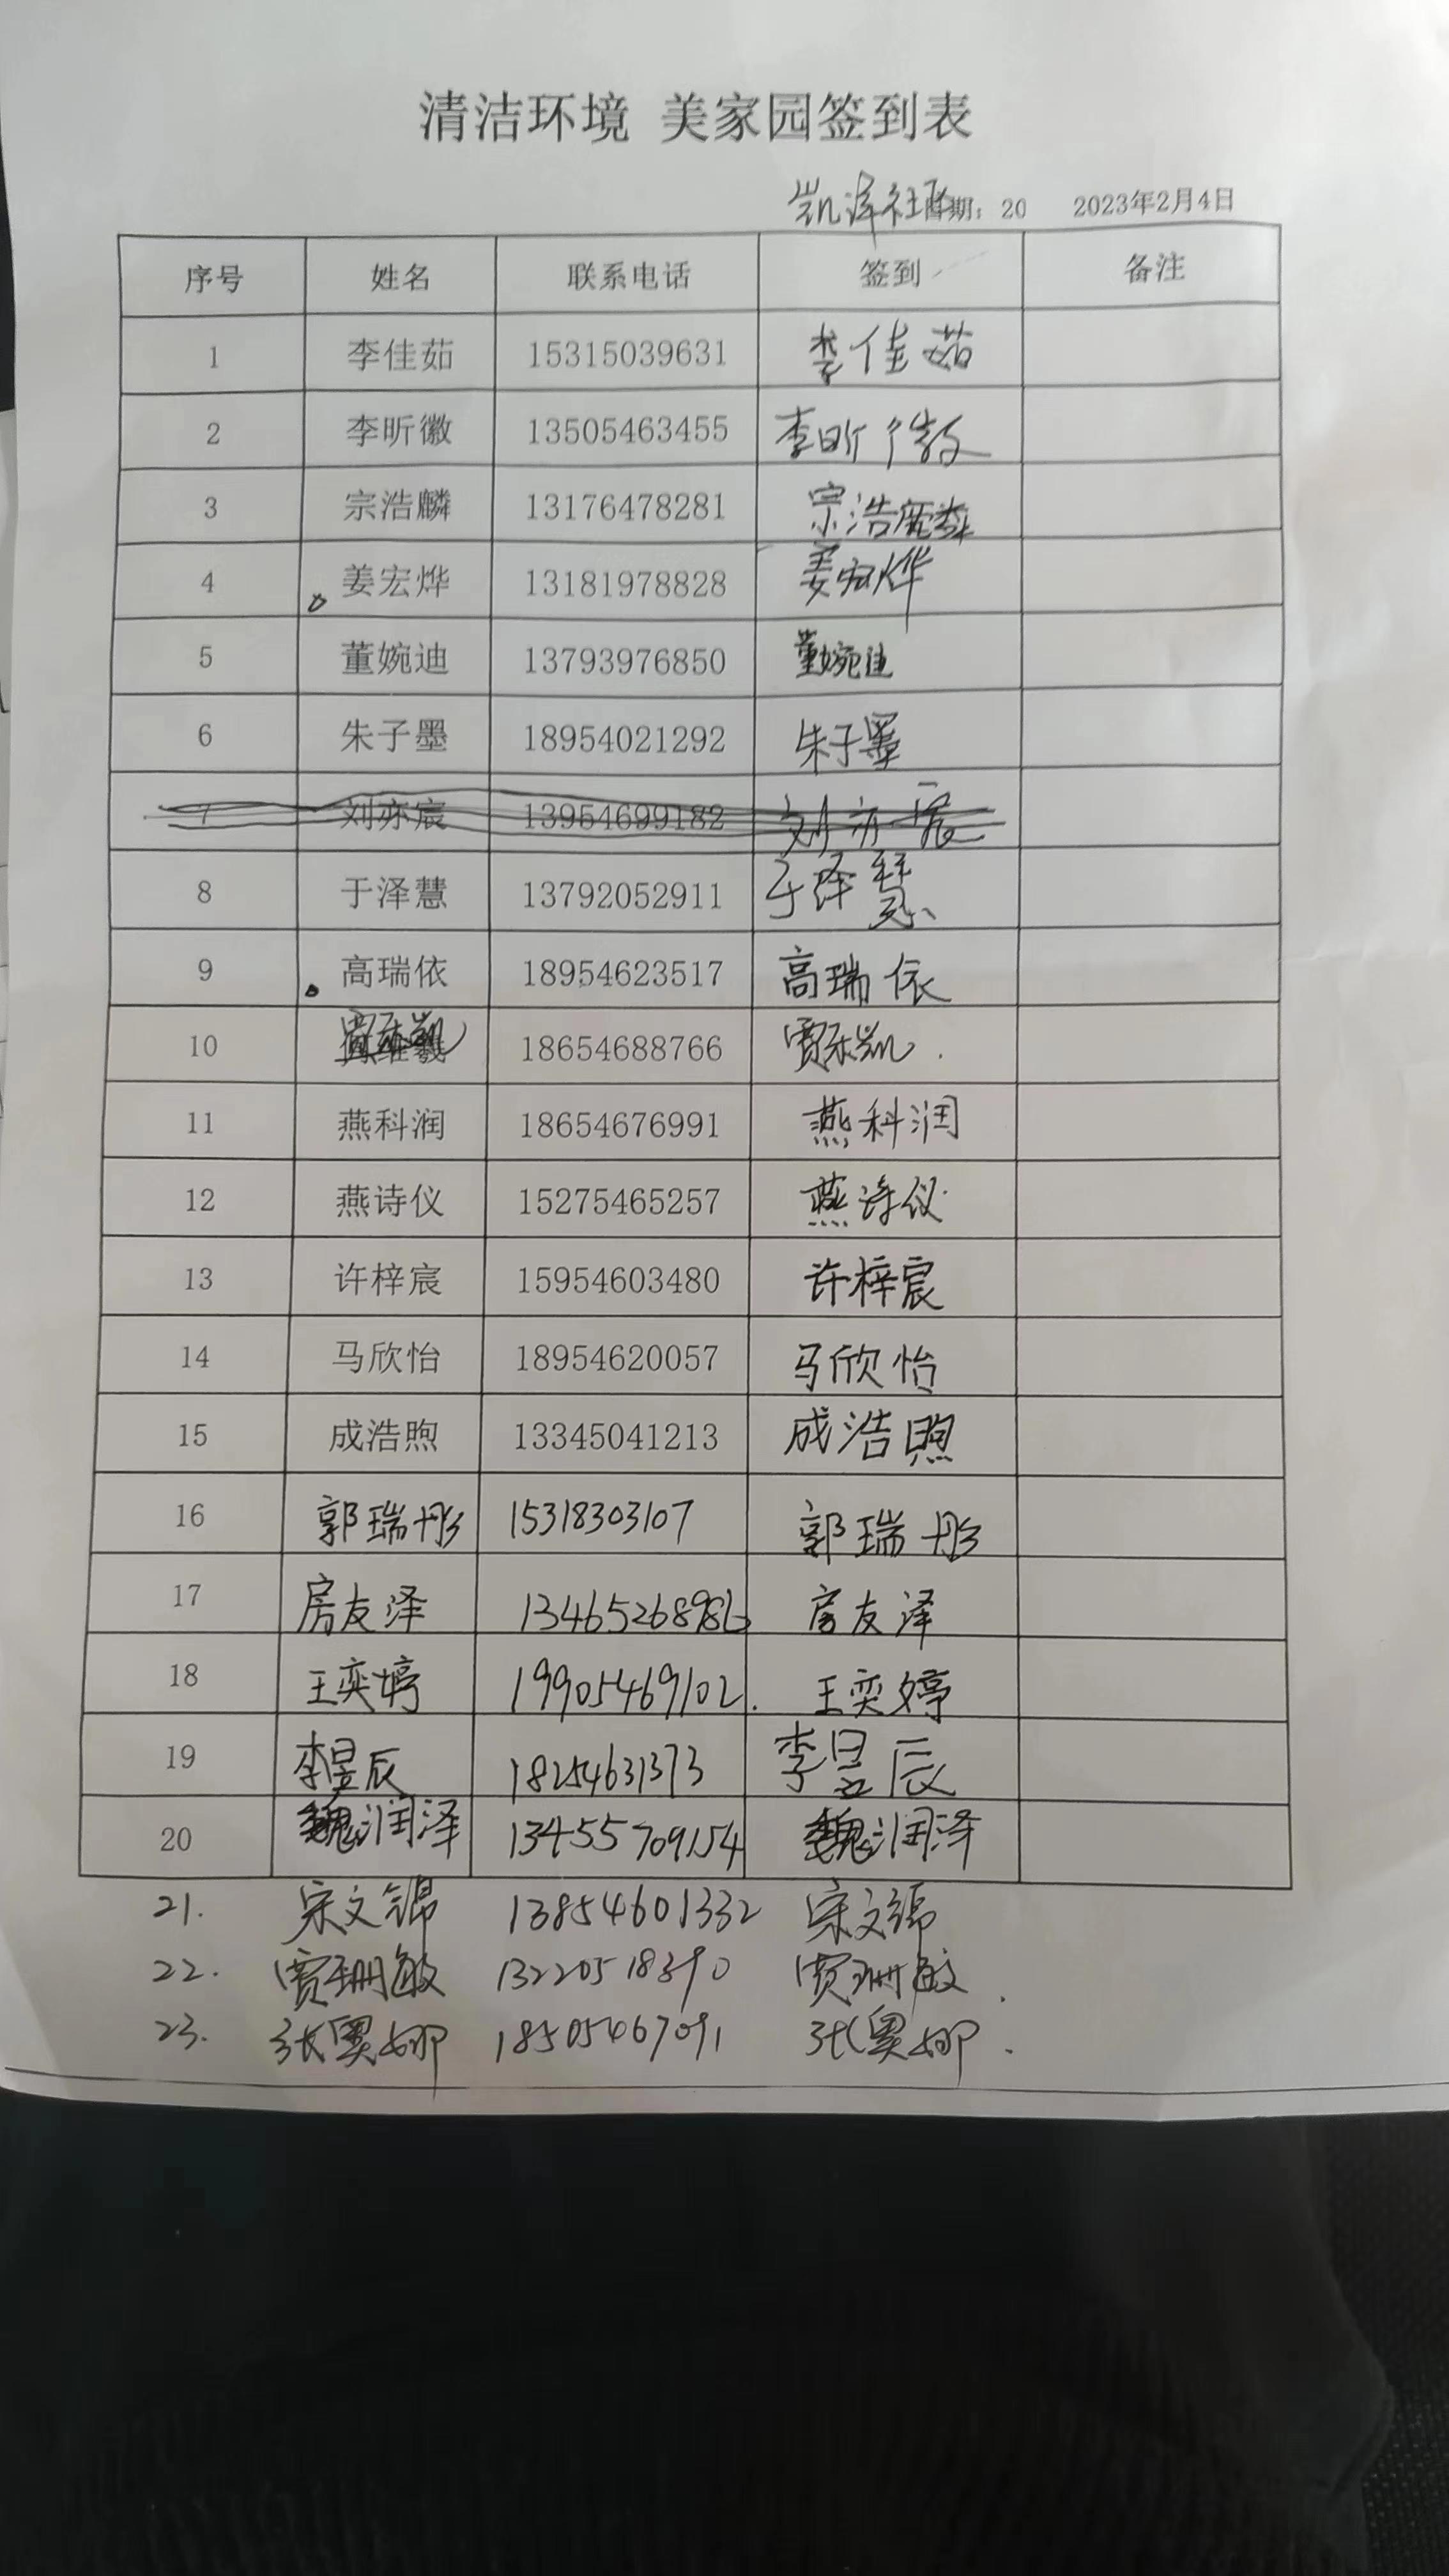 清洁环境 美家园签到表
凯泽社区 日期：20 2023年2月4日
序号 姓名 联系电话 签到 备注
1 李佳茹 15315039631 李佳茹
2 李昕徽 13505463455 李昕徽
3 宗浩麟 13176478281 宗浩麟
4 姜宏烨 13181978828 姜宏烨
5 董婉迪 13793976850 董婉迪
6 朱子墨 18954021292 朱子墨
7 刘亦宸 13954699182 刘亦宸
8 于泽慧 13792052911 于泽慧
9 高瑞依 18954623517 高瑞依
10 18654688766
11 燕科润 18654676991 燕科润
12 燕诗仪 15275465257 燕诗仪
13 许梓宸 15954603480 许梓宸
14 马欣怡 18954620057 马欣怡
15 成浩煦 13345041213 成浩煦
16 郭瑞彤 15318303107 郭瑞彤
17 房友泽 房友泽
18 王奕婷 19905469102. 王奕婷
19 李昱辰 18254631373 李昱辰
20 魏润泽 13455709154 魏润泽
21. 宋文锦 13854601332 宋文锦
22. 贾珊敏 13220518390 贾珊敏.
23. 张奥娜 18505467091 张奥娜.